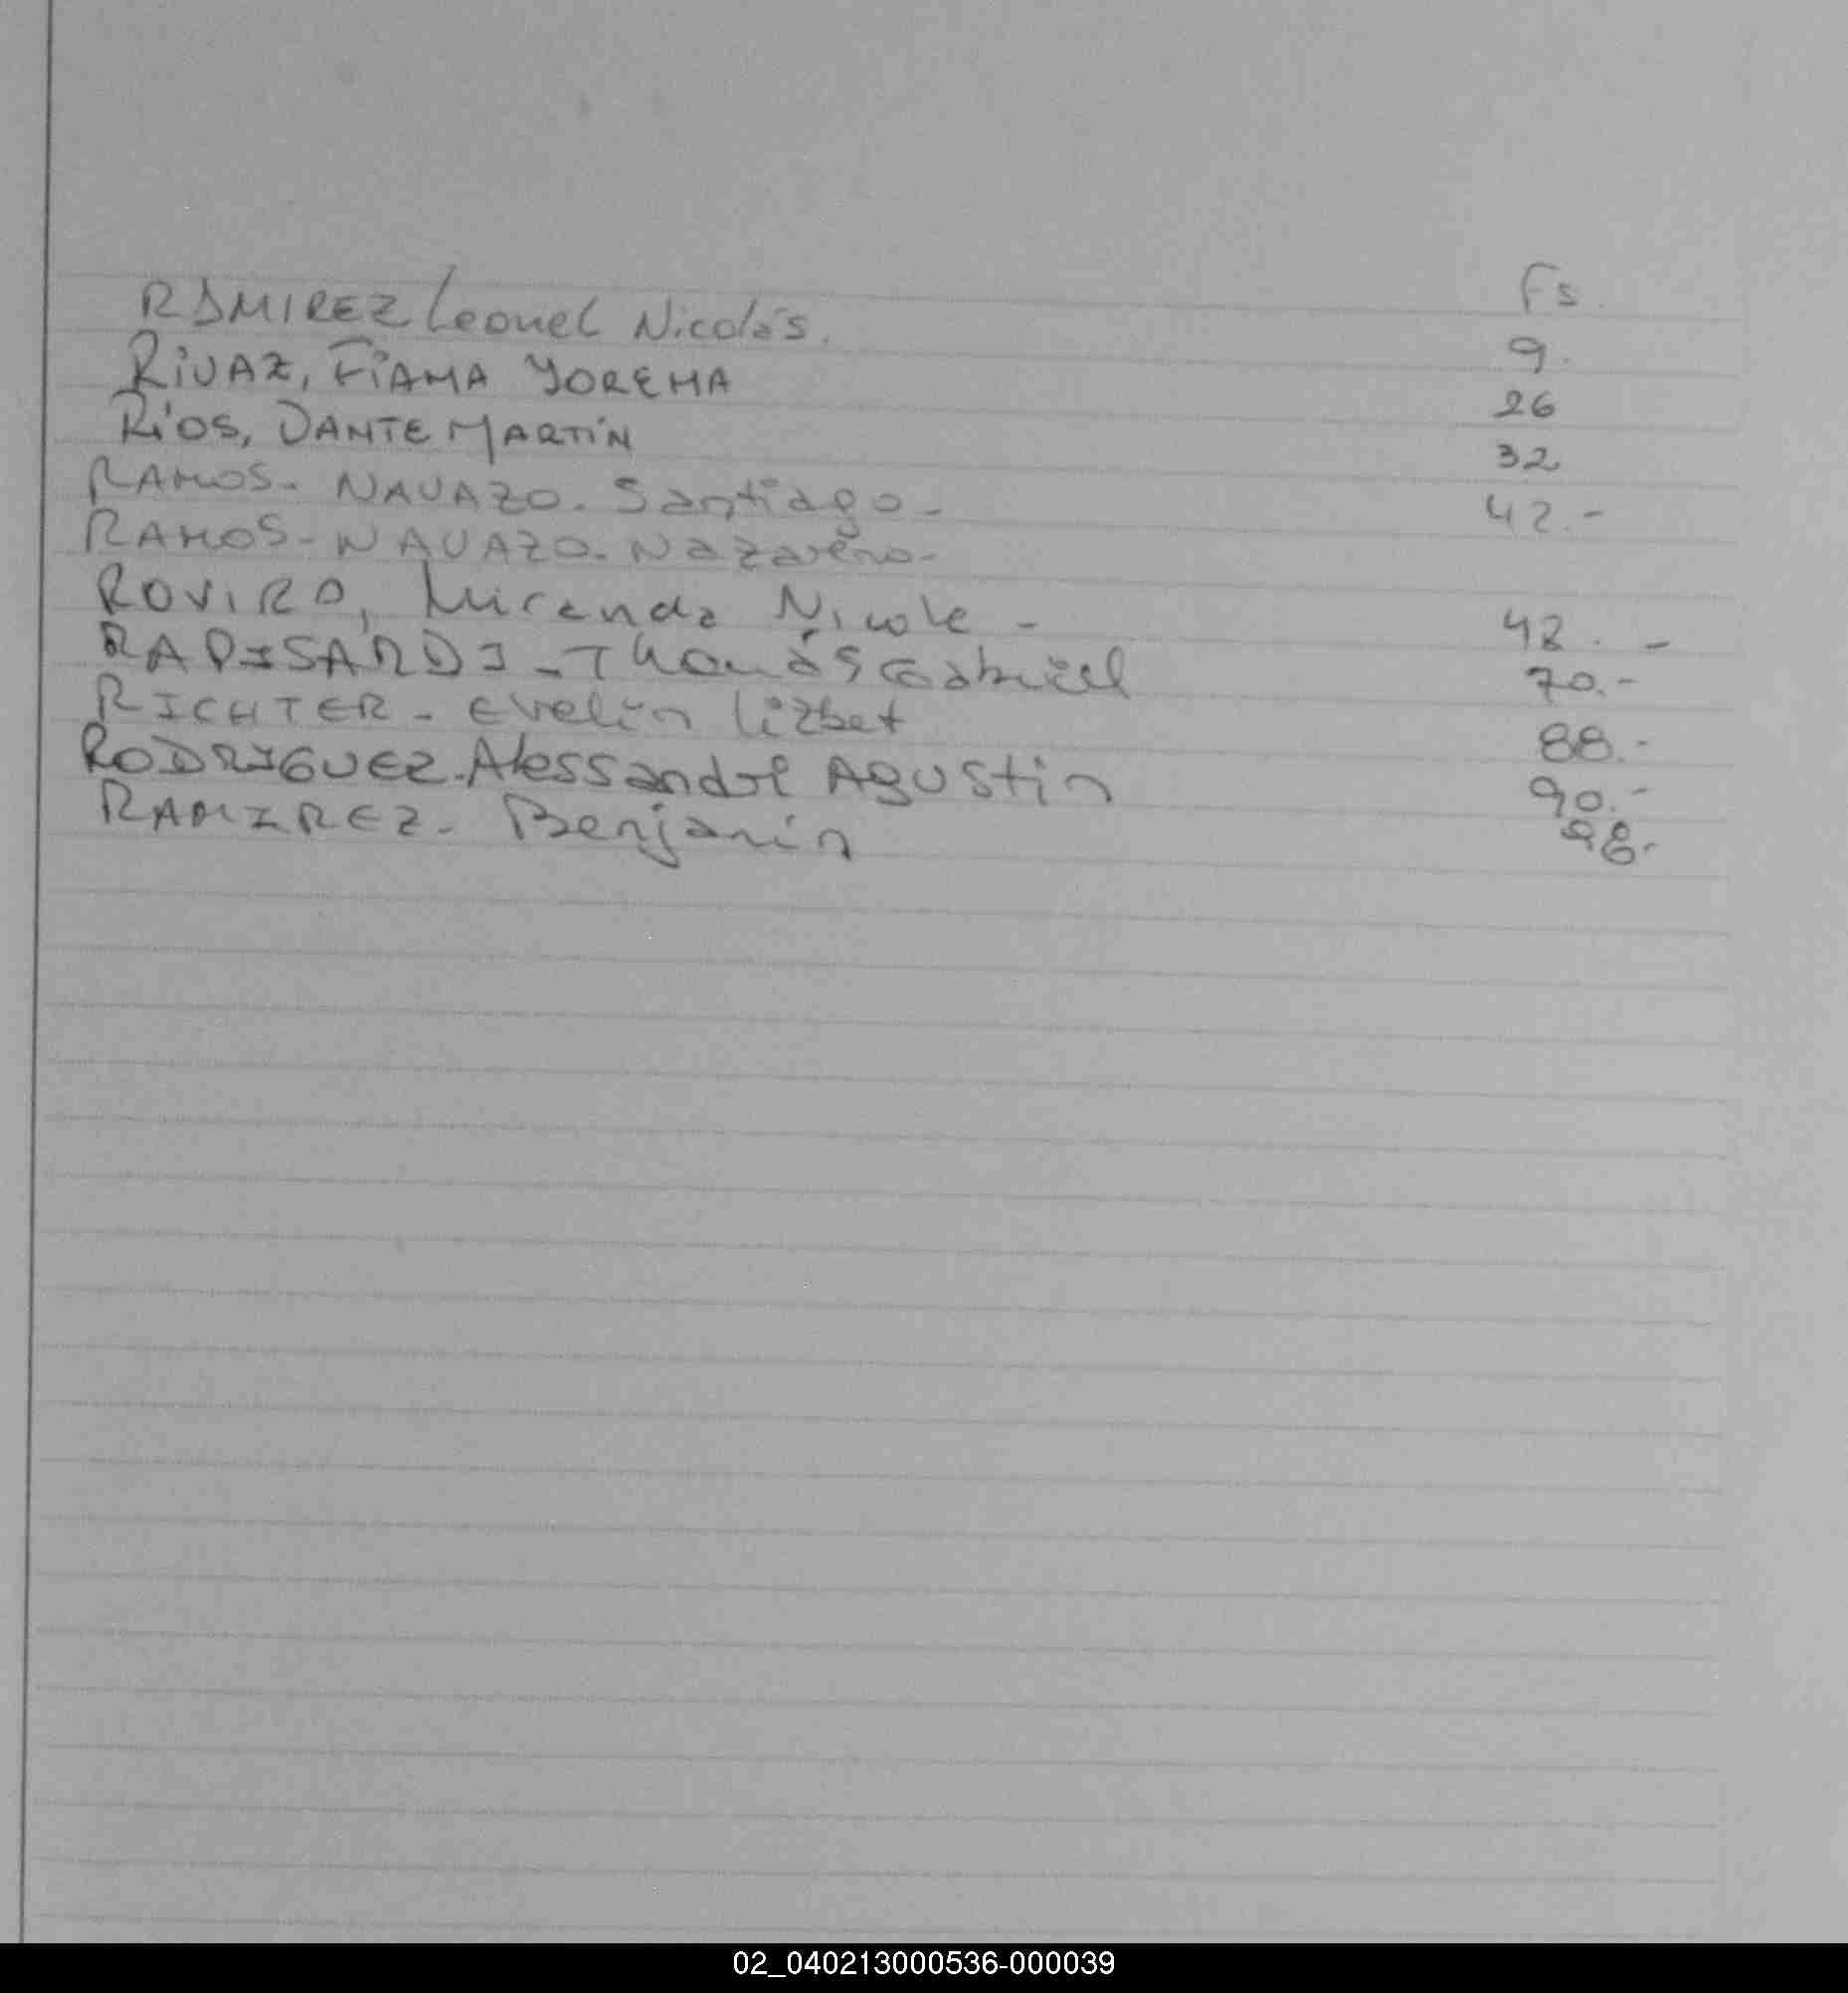 Fs.
RAMIREZ Leonel Nicolás. 9.
RiVAZ, FiAMA YOREMA 26
Ríos, DANTE MARTÍN 32
RAMOS- NAVAZO. Santiago- 42.-
RAMOS-NAVAZO. Nazareno-
ROVIRA, Miranda Nicole - 48. -
RADISARDI - Thomás Gabriel 70.-
RICHTER - Evelin lizbet 88.-
RODRIGUEZ. Alessandre Agustin 90.-
RAMIREZ- Benjamin 98.
02_040213000536-000039